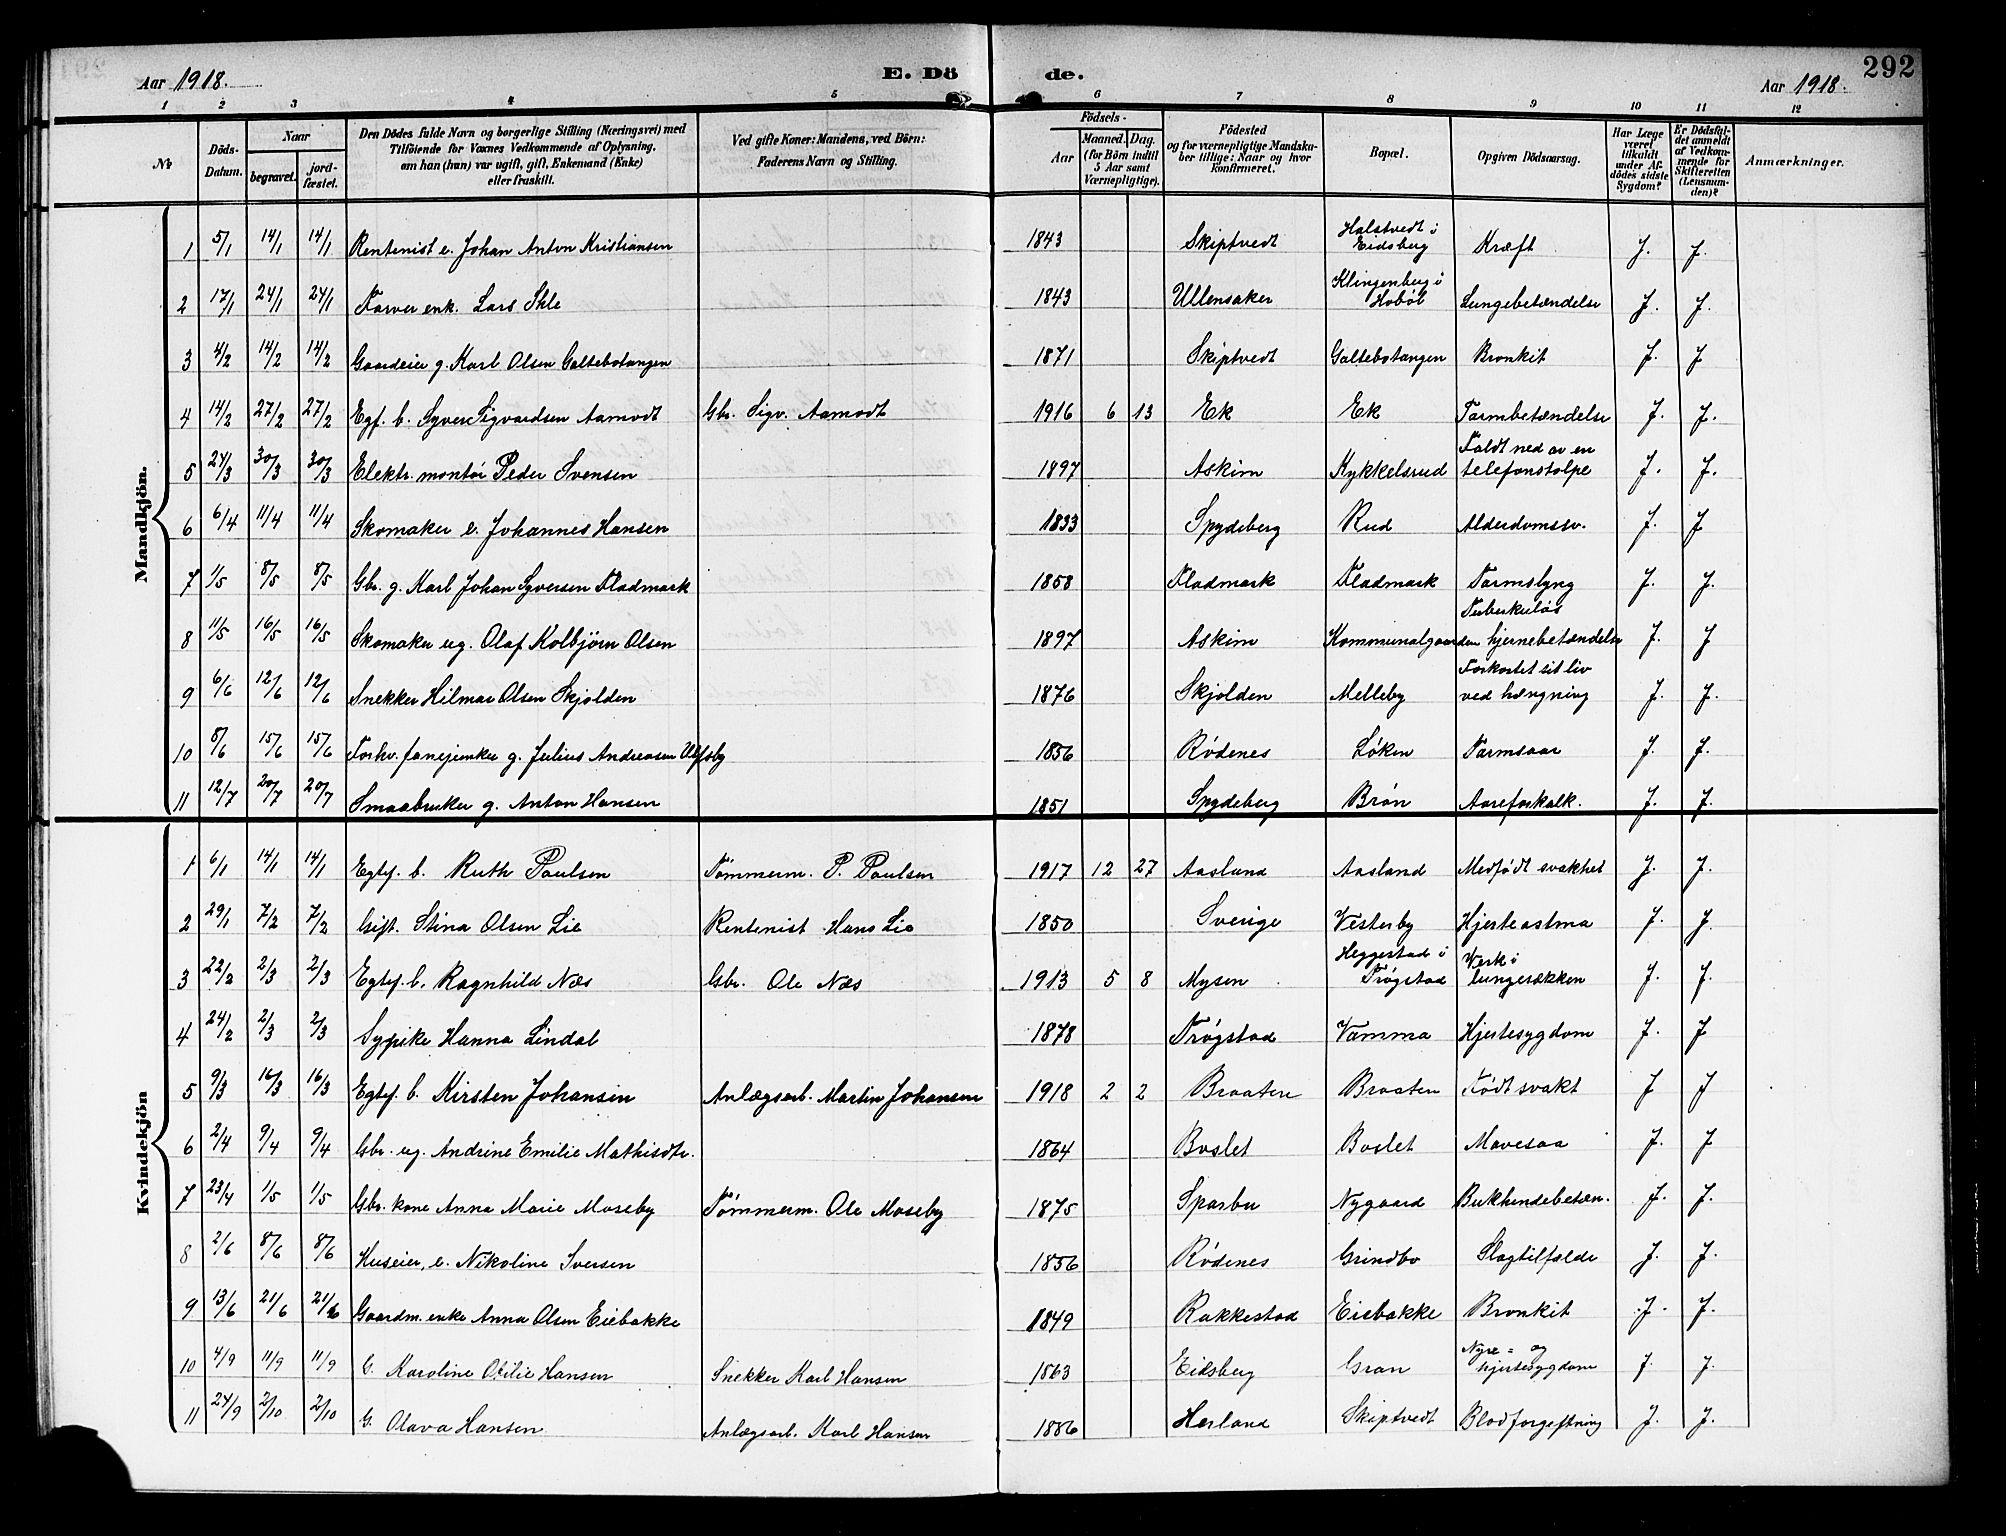 292
Aar 1918. E. Dö de. Aar 1918.
1 2 3 4 5 6 7 8 9 10 11 12
№ Döds-Datum. Naar begravet. jord-fæstet. Den Dödes fulde Navn og borgerlige Stilling (Næringsvei) med Tilföiende for Voxnes Vedkommende af Oplysning, om han (hun) var ugift, gift, Enkemand (Enke) eller fraskilt. Ved gifte Koner: Mandens, ved Börn: Faderens Navn og Stilling. Födsels- Aar Maaned. Dag. (for Börn indtil 5 Aar samt Værnepligtige). Födested og for værnepligtige Mandskaber tillige: Naar og hvor konfirmeret. Bopæl. Opgiven Dödsaarsag. Har Læge været tilkaldt under Afdödes sidste Sygdom? Er Dödsfaldet anmeldt af Vedkommende for Skifteretten (Lensmanden)? Anmærkninger.
Mandkjön.
1 5/1 14/1 14/1 Rentenist e. Johan Anton Kristiansen 1843 Skiptvedt Halstvedt i Eidsberg Kræft J. J.
2 17/1 24/1 24/1 Farver enk. Lars Skle 1843 Ullensaker Klingenberg i Hobøl Lungebetændelse J. J.
3 4/2 14/2 14/2 Gaardeier g. Karl Olsen Galtebotangen 1871 Skiptvedt Galtebotangen Bronkit J. J
4 14/2 27/2 27/2 Egf. b. Syver Sigvardsen Aamodt Gbr. Sigv. Aamodt 1916 6 13 Ek Ek Tarmbetændelse J. J.
5 24/3 30/3 30/3 Elektr. montør Peder Svensen 1897 Askim Kykkelsrud Faldt ned av en telefonstolpe J. J.
6 6/4 11/4 11/4 Skomaker e. Johannes Hansen 1833 Spydeberg Rud Alderdomssv. J. J
7 1/5 8/5 8/5 Gbr. g. Karl Johan Syversen Fladmark 1858 Fladmark Fladmark Tarmslyng J. J.
8 11/5 16/5 16/5 Skomaker ug. Olaf Kolbjörn Olsen 1897 Askim Kommunalgaarden Tuberkuløs hjernebetændelse J. J
9 6/6 12/6 12/6 Snekker Hilmar Olsen Skjolden 1876 Skjolden Melleby Forkortet sit liv ved hængning J. J.
10 8/6 15/6 15/6 Forhv. fanejunker g. Julius Andreasen Ulfsby 1856 Rödenes Löken Tarmsaar J. J.
11 12/7 20/7 20/7 Smaabruker g. Anton Hansen 1851 Spydeberg Brön Aareforkalk. J. J.
Kvindekjön
1 6/1 14/1 14/1 Egtef. b. Ruth Paulsen Tömmerm. P. Paulsen 1917 12 27 Aasland Aasland Medfödt svakhet J. J.
2 29/1 7/2 7/2 Gift. Stina Olsen Lie Rentenist Hans Lie 1850 Sverige Vesterby Hjerteastma J. J.
3 22/2 2/3 2/3 Egtef. b. Ragnhild Næs Gbr. Ole Næs 1913 5 8 Mysen Heggestad i Trøgstad Verk i lungesækken J. J.
4 24/2 2/3 2/3 Sypike Hanna Lindal 1878 Trøgstad Vamma Hjertesygdom J. J
5 9/3 16/3 16/3 Egtef. b. Kirsten Johansen Anlægsarb. Martin Johansen 1918 2 2 Braaten Braaten Födt svakt J J
6 2/4 9/4 9/4 Gbr. ug. Andrine Emilie Mathisdtr. 1864 Boslet Boslet Mavesaa J. J
7 23/4 1/5 1/5 Gbr. kone Anna Marie Moseby Tömmerm. Ole Moseby 1875 Sparbu Nygaard Bukhindebetæn. J. J.
8 2/6 8/6 8/6 Huseier, e. Nikoline Iversen 1856 Rödenes Grindbo Slagtilfælde J. J.
9 13/6 21/6 21/6 Gaardm. enke Anna Olsen Eiebakke 1849 Rakkestad Eiebakke Bronkit J. J.
10 4/9 11/9 11/9 G. Karoline Otilie Hansen Snekker Karl Hansen 1863 Eidsberg Gran Nyre= og hjertesygdom J. J.
11 24/9 2/10 2/10 G. Olava Hansen Anlægsarb. Karl Hansen 1886 Herland Skiptvedt Blodforgiftning J. J.